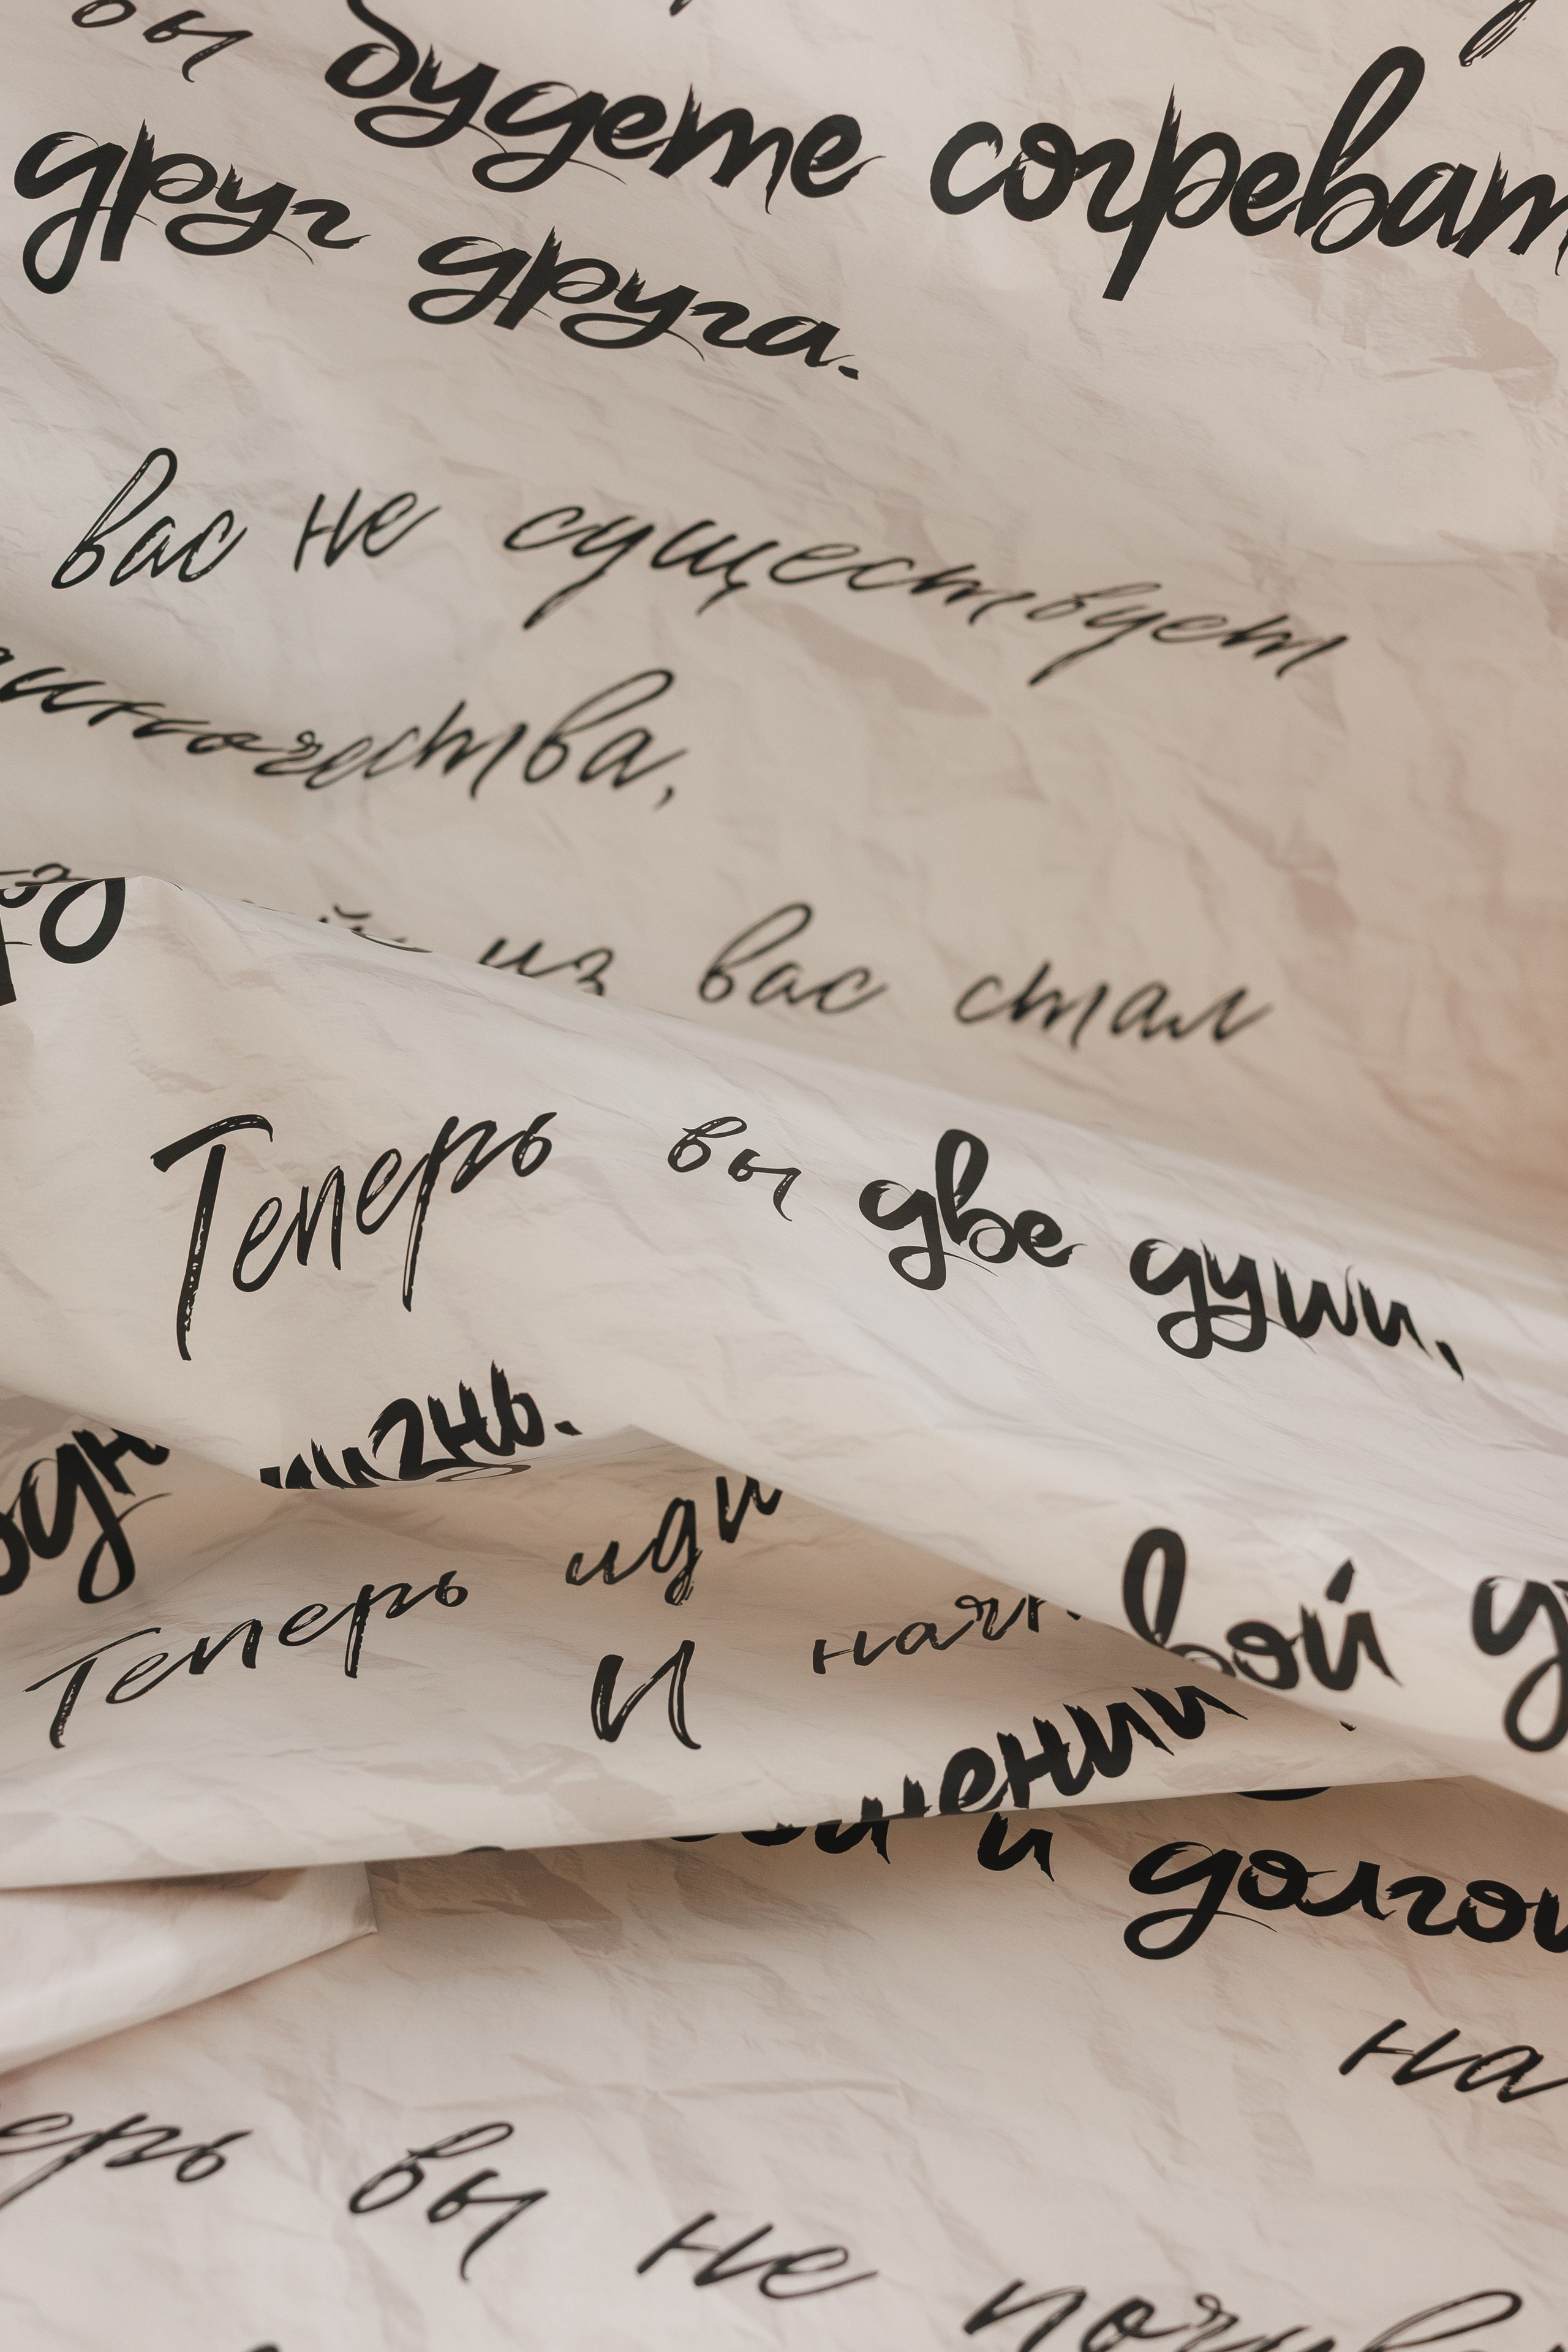 вы будете согреват
друг друга.
вас не существует
иночества,
й из вас стал
Теперь вы две души,
жизнь.
одн
иди
Теперь
И начн
вой
нении
и долгой
на
ерь вы не почув